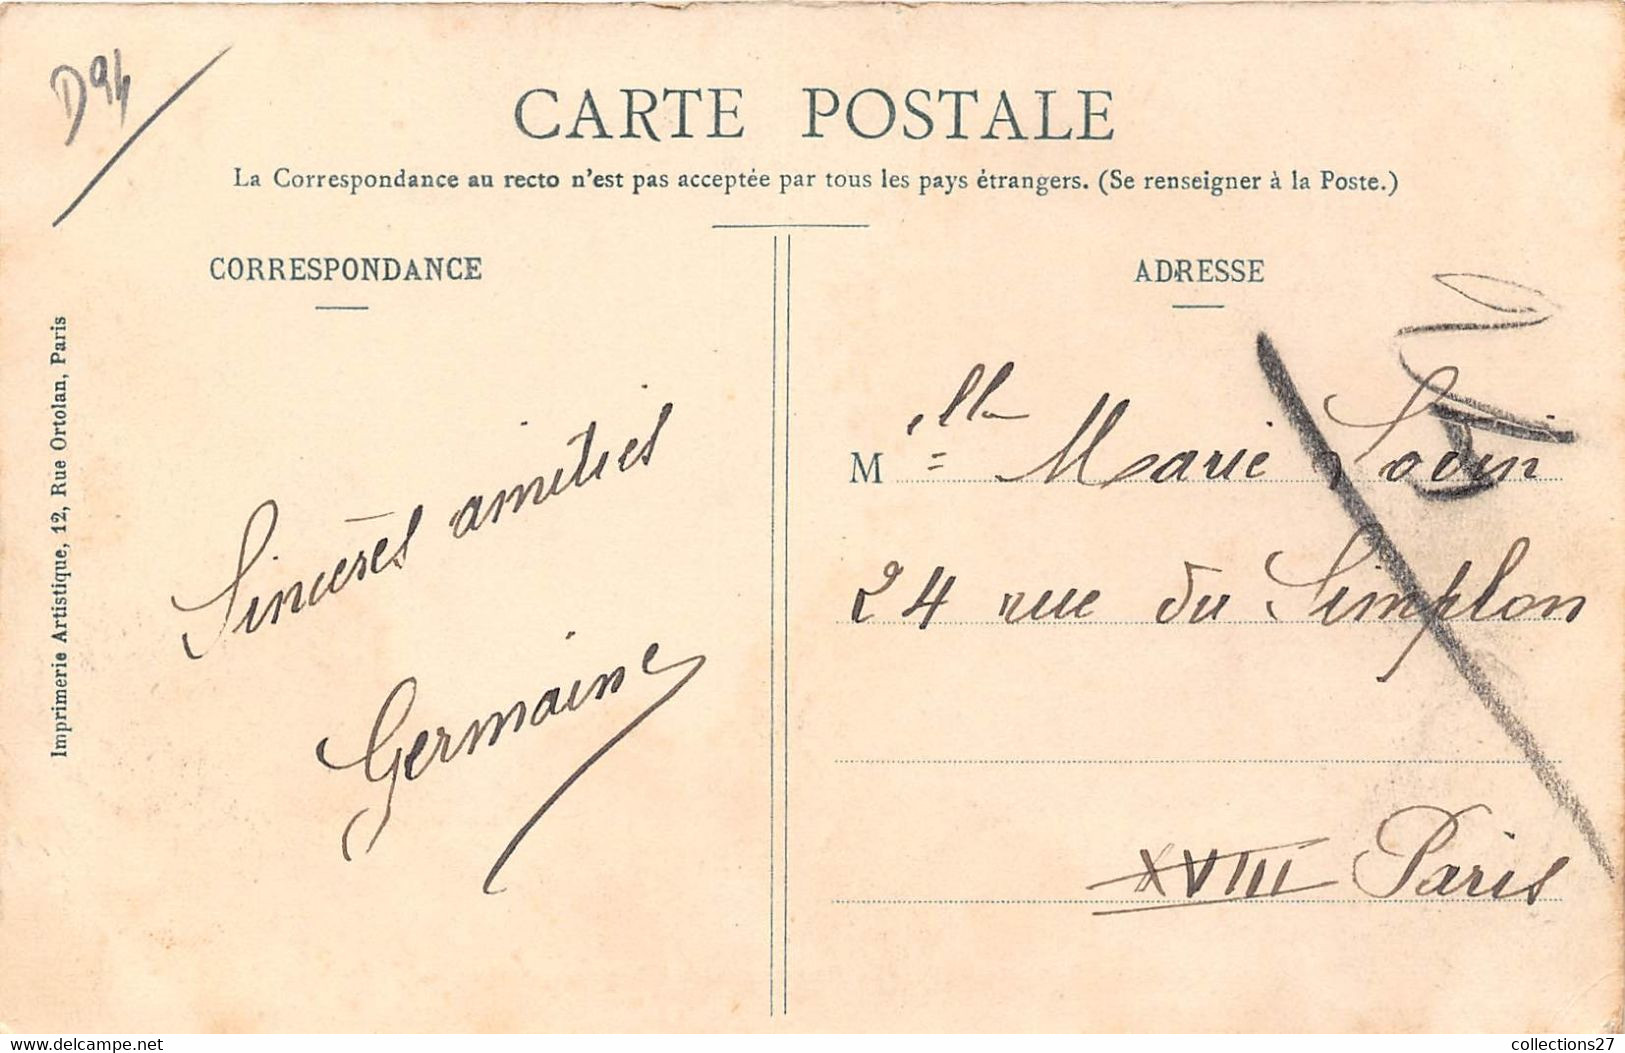 D94
CARTE POSTALE
La Correspondance au recto n'est pas acceptée par tous les pays étrangers. (Se renseigner à la Poste.)
CORRESPONDANCE
Sincères amitiés
Germaine
Imprimerie Artistique, 12, Rue Ortolan, Paris
ADRESSE
Melle Marie
24 rue du Simplon
XVIII Paris
delcampe.net
collections27